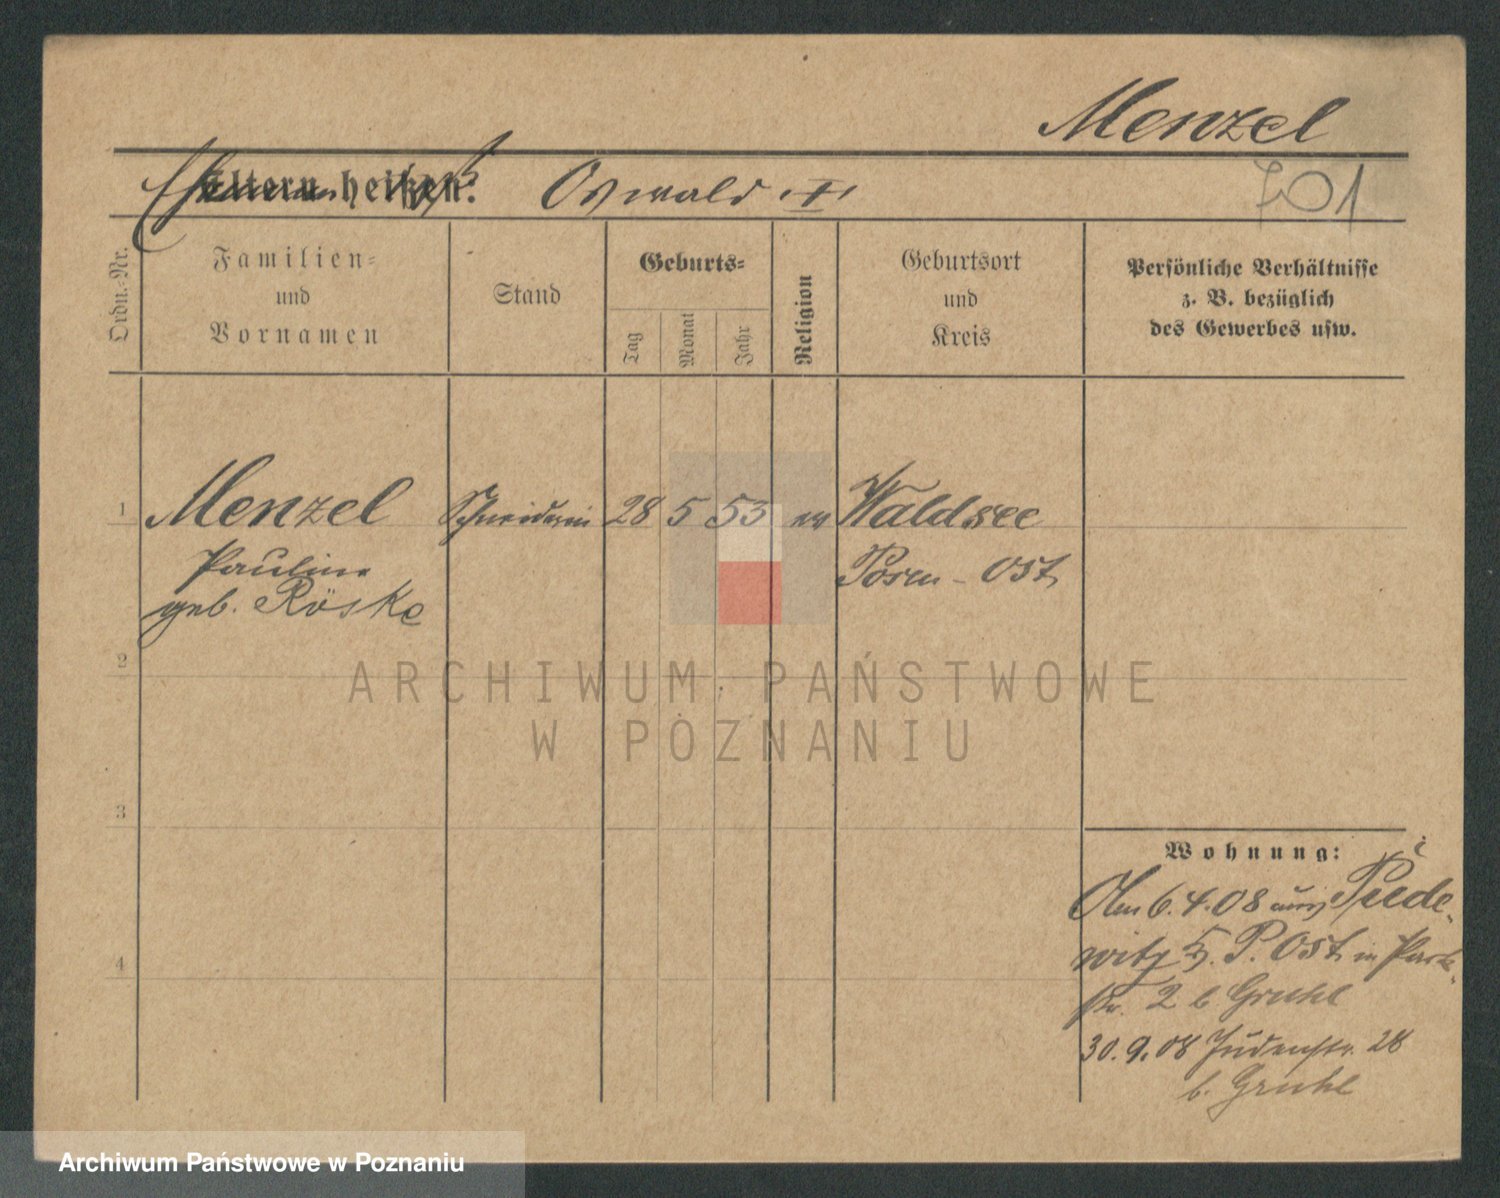 Menzel
Eltern heißen: Oswald
701
Ordn.-Nr.
Familien-
und
Vornamen
Stand
Geburts-
Tag
Monat
Jahr
Religion
Geburtsort
und
Kreis
Persönliche Verhältnisse
z. B. bezüglich
des Gewerbes usw.
1 Menzel Schneiderin 28 5 53 ev Waldsee
Pauline Posen - Ost
geb. Röske
2
ARCHIWUM PAŃSTWOWE
W POZNANIU
3
Wohnung:
Am 6.4.08 aus Priede-
witz P. Ost in Park-
4
str. 2 b. Gruhl
30.9.08 Judenstr. 28
b. Gruhl
Archiwum Państwowe w Poznaniu